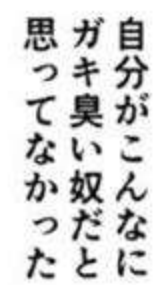 自分がこんなに
ガキ臭い奴だと
思ってなかった